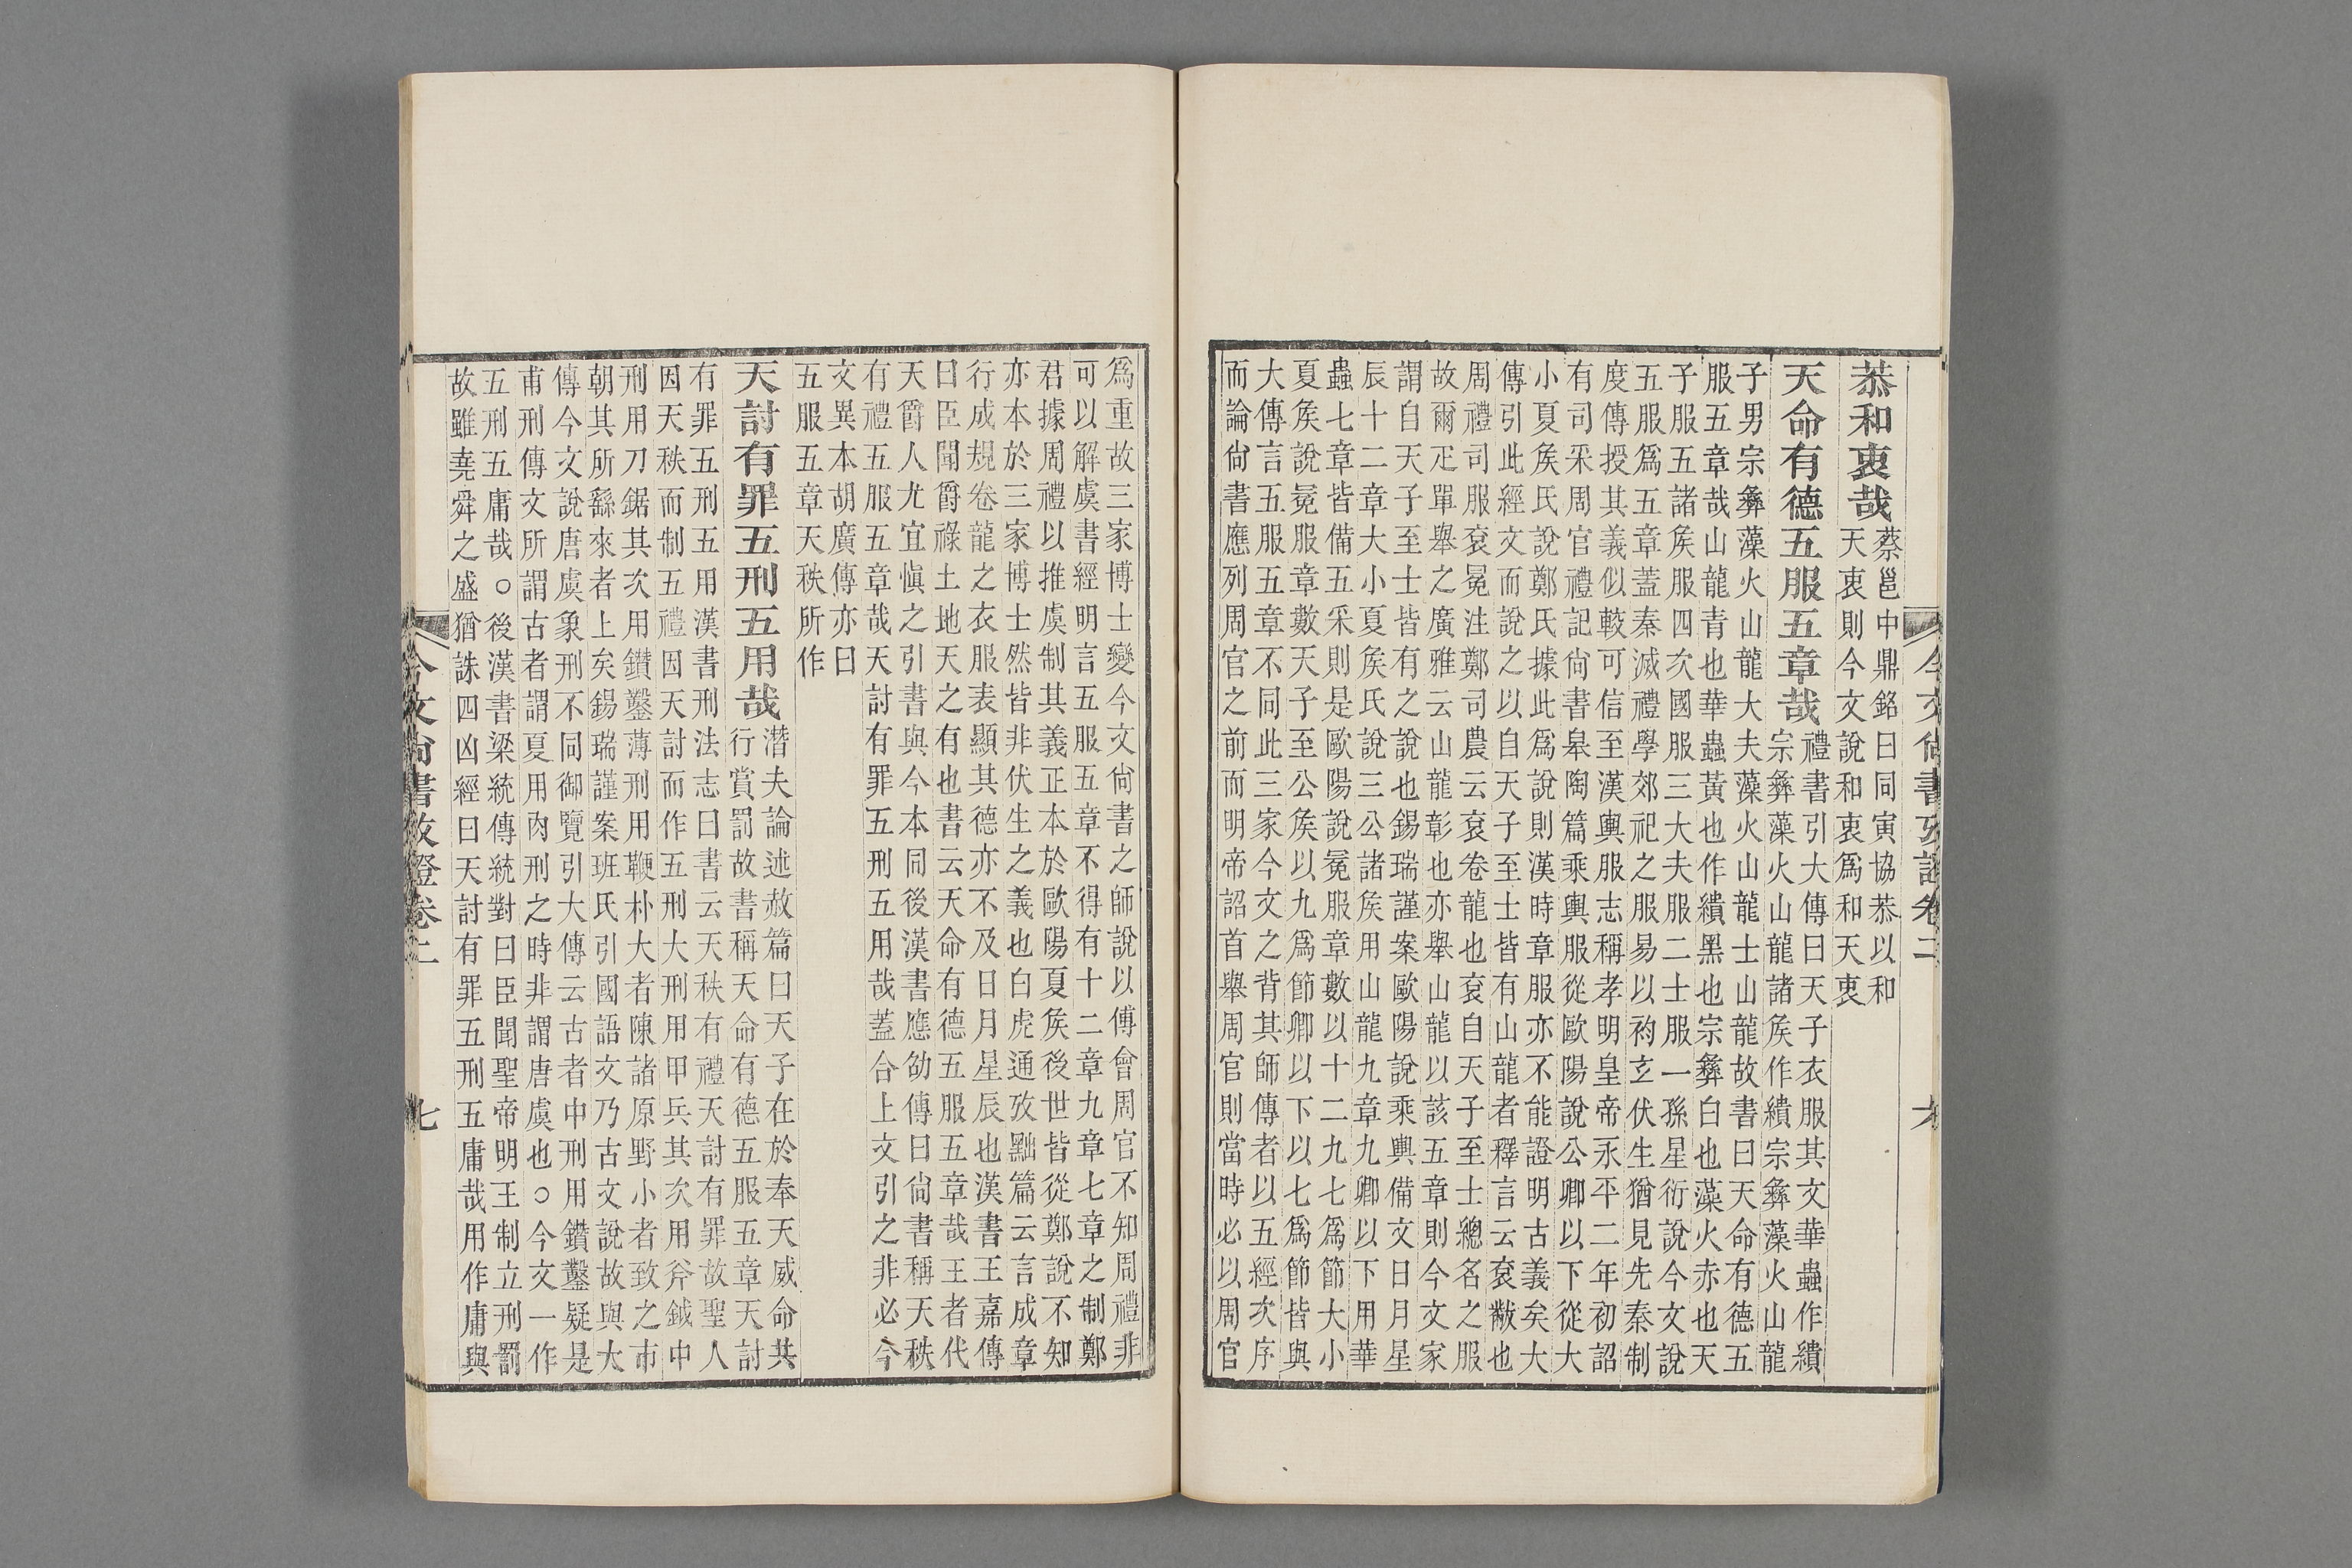 恭和衷哉
蔡邕中鼎銘曰同寅協恭以和
天衷則今文說和衷爲和天衷
天命有德五服五章哉
禮書引大傳曰天子衣服其文華蟲作繢
宗彝藻火山龍諸矦作繢宗彝藻火山龍
子男宗彝藻火山龍大夫藻火山龍士山龍故書曰天命有德五
服五章哉山龍青也華蟲黃也作繢黑也宗彝白也藻火赤也天
子服五諸矦服四次國服三大夫服二士服一孫星衍說今文說
五服爲五章蓋秦滅禮學郊祀之服易以袀玄伏生猶見先秦制
度傳授其義似較可信至漢輿服志稱孝明皇帝永平二年初詔
有司采周官禮記尙書皋陶篇乘輿服從歐陽說公卿以下從大
小夏矦氏說鄭氏據此爲說則漢時章服亦不能證明古義矣大
傳引此經文而說之以自天子至士皆有山龍者釋言云袞黻也
周禮司服袞冕注鄭司農云袞卷龍也袞自天子至士總名之服
故爾疋單舉之廣雅云山龍彰也亦舉山龍以該五章則今文家
謂自天子至士皆有之說也錫瑞謹案歐陽說乘輿備文日月星
辰十二章大小夏矦氏說三公諸矦用山龍九章九卿以下用華
蟲七章皆備五采則是歐陽說冕服章數以十二九七爲節大小
夏矦說冕服章數天子至公矦以九爲節卿以下以七爲節皆與
大傳言五服五章不同此三家今文之背其師傳者以五經次序
而論尙書應列周官之前而明帝詔首舉周官則當時必以周官
爲重故三家博士變今文尙書之師說以傅會周官不知周禮非
可以解虞書經明言五服五章不得有十二章九章七章之制鄭
君據周禮以推虞制其義正本於歐陽夏矦後世皆從鄭說不知
亦本於三家博士然皆非伏生之義也白虎通攷黜篇云言成章
行成規卷龍之衣服表顯其德亦不及日月星辰也漢書王嘉傳
曰臣聞爵祿土地天之有也書云天命有德五服五章哉王者代
天爵人尤宜愼之引書與今本同後漢書應劭傳曰尙書稱天秩
有禮五服五章哉天討有罪五刑五用哉蓋合上文引之非必今
文異本胡廣傳亦曰
五服五章天秩所作
天討有罪五刑五用哉
潛夫論述赦篇曰天子在於奉天威命共
行賞罰故書稱天命有德五服五章天討
有罪五刑五用漢書刑法志曰書云天秩有禮天討有罪故聖人
因天秩而制五禮因天討而作五刑大刑用甲兵其次用斧鉞中
刑用刀鋸其次用鑽鑿薄刑用鞭朴大者陳諸原野小者致之市
朝其所繇來者上矣錫瑞謹案班氏引國語文乃古文說故與大
傳今文說唐虞象刑不同御覽引大傳云古者中刑用鑽鑿疑是
甫刑傳文所謂古者謂夏用肉刑之時非謂唐虞也○今文一作
五刑五庸哉○後漢書梁統傳統對曰臣聞聖帝明王制立刑罰
故雖堯舜之盛猶誅四凶經曰天討有罪五刑五庸哉用作庸與
今文尙書攷證卷二
七